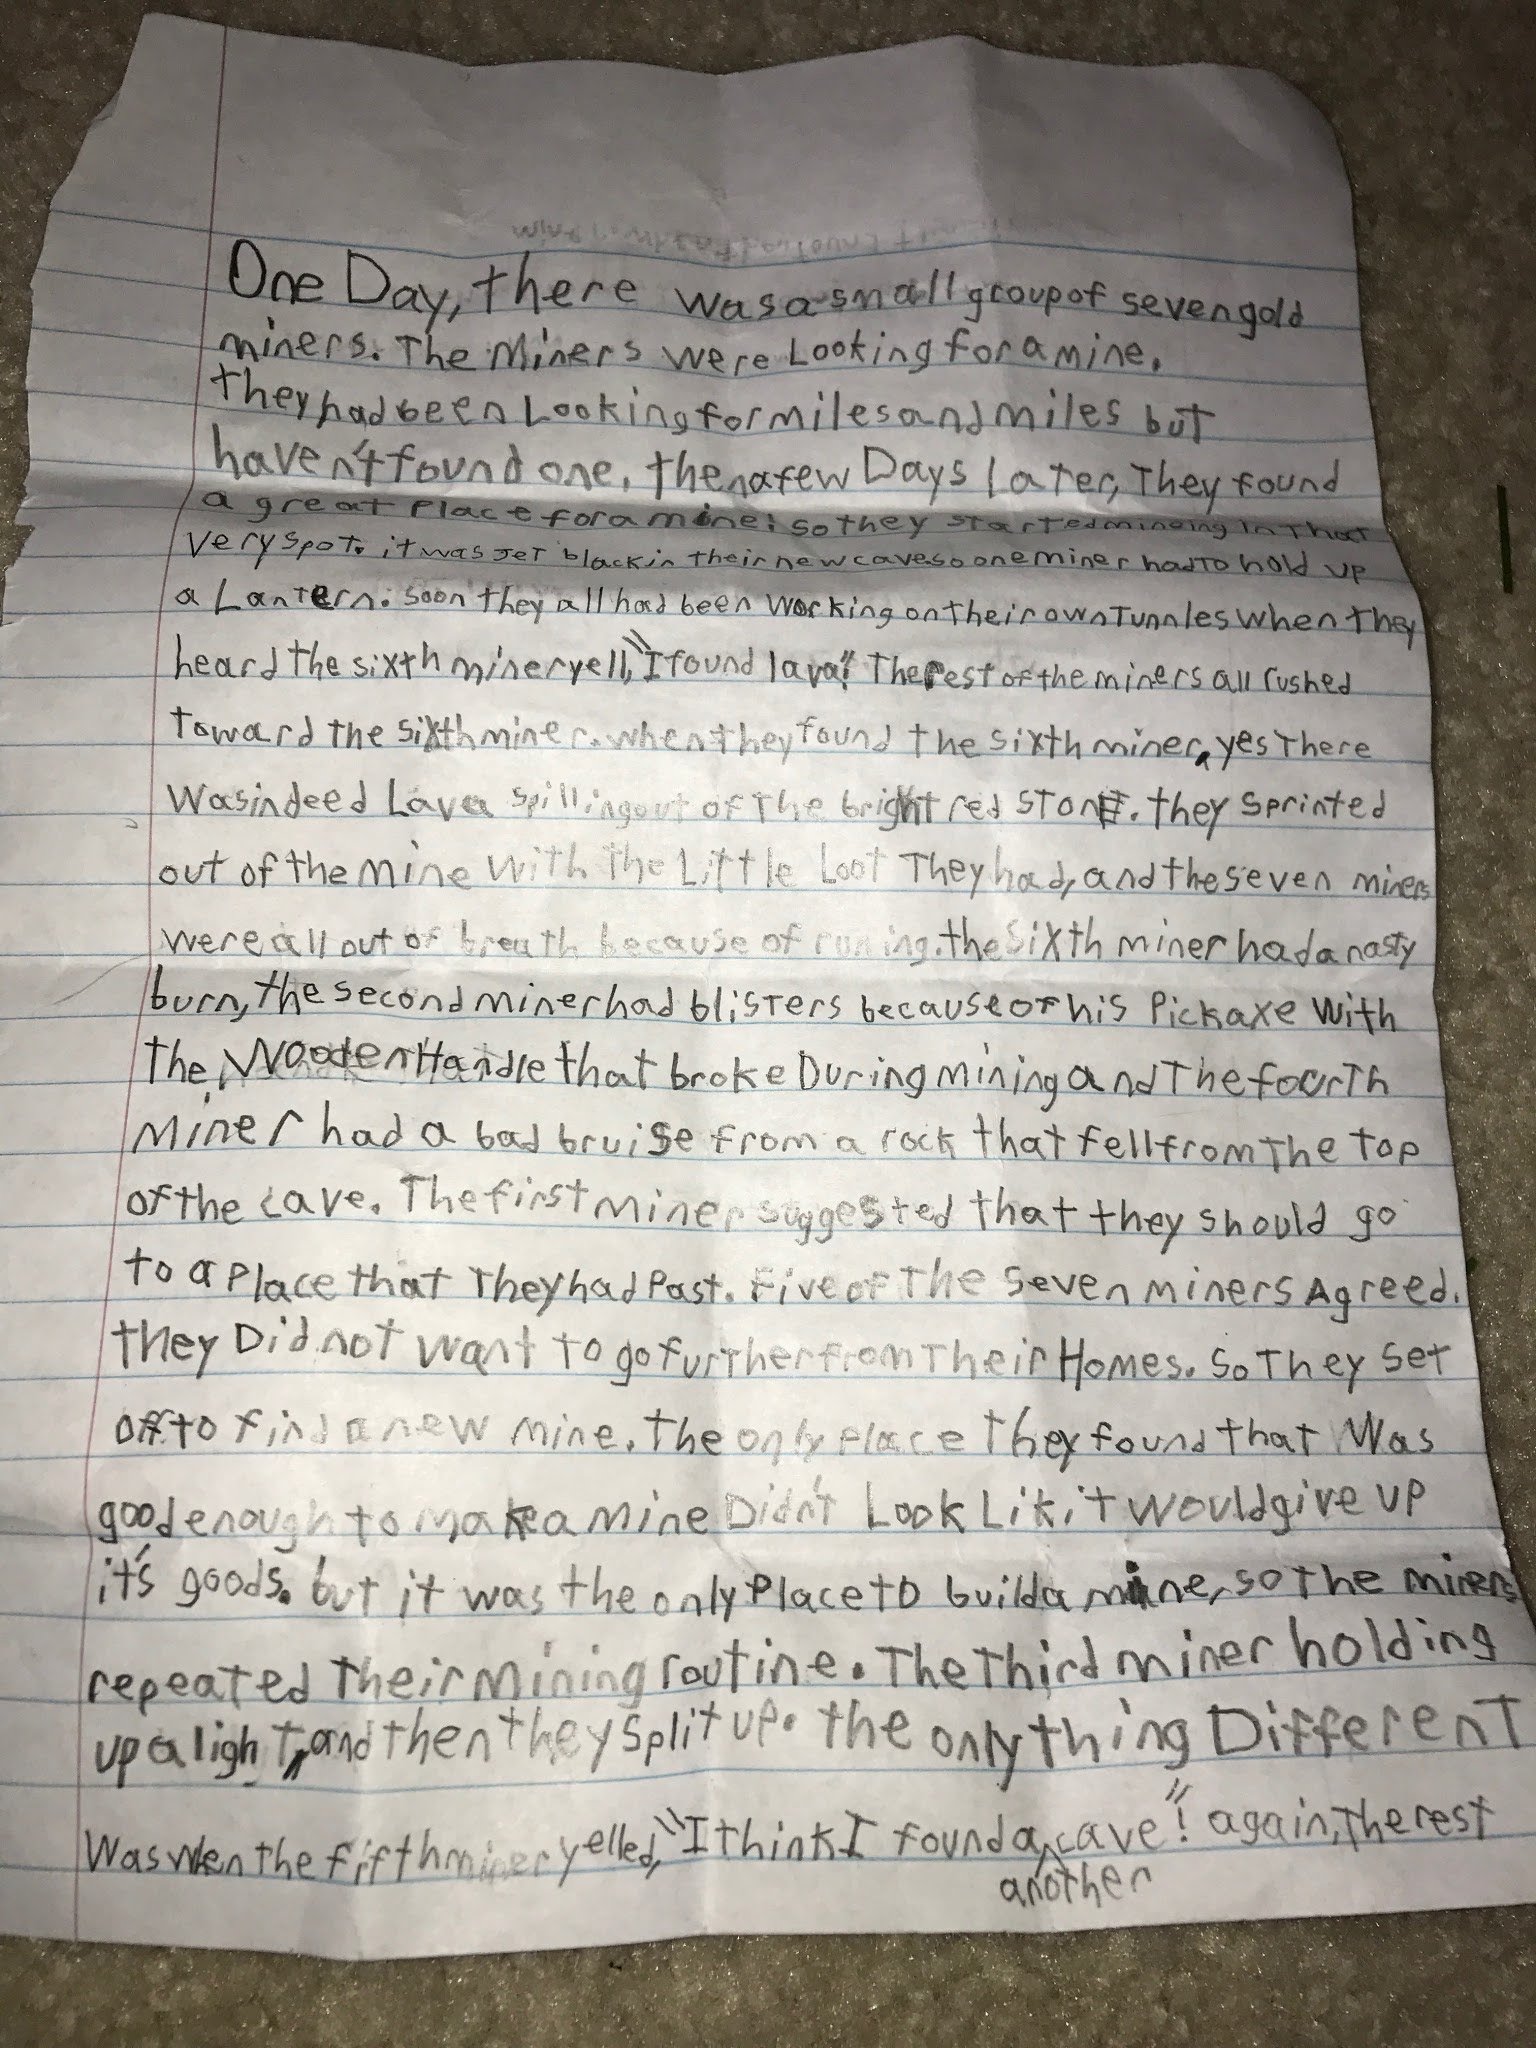 One Day, there was a small group of seven gold
miners. The Miners were Looking for a mine.
they had been Looking for miles and miles but
haven't found one. then a few Days Later, They found
a great Place for a mine. so they started mineing in that
very spot. it was jet black in their new cave so one miner had to hold up
a Lantern. soon they all had been working on their own Tunnles when they
heard the sixth miner yell, "I found lava!" The rest of the miners all rushed
toward the sixth miner. when they found the sixth miner, yes There
was indeed Lava spilling out of the bright red stone. they sprinted
out of the mine with the Little Loot They had, and the seven miners
were all out of breath because of runing. the sixth miner had a nasty
burn, the second miner had blisters because of his Pickaxe with
the Wooden Handle that broke During mining and The fourth
miner had a bad bruise from a rock that fell from The top
of the cave. The first miner suggested that they should go
to a place that They had Past. Five of The seven miners Agreed.
they Did not want to go further from Their Homes. So They set
off to find a new mine. The only place they found that Was
good enough to make a mine Didn't Look Lik it would give up
it's goods. but it was the only Place to build a mine, so the miners
repeated their mining routine. The third miner holding
up a light, and then they split up. the only thing Different
Was when the fifth miner yelled, "I think I found a cave"! again, The rest
another